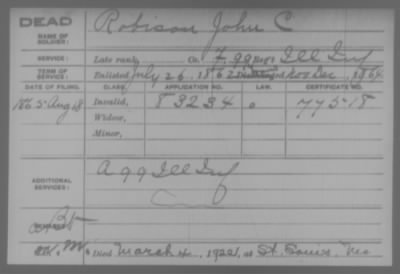 DEAD
NAME OF SOLDIER: Robison John C
SERVICE: Late rank, Co. F, 99 Reg't Ill Inf
TERM OF SERVICE: Enlisted July 26, 1862 Discharged Dec, 1864
DATE OF FILING. CLASS. APPLICATION NO. LAW. CERTIFICATE NO.
1865 Aug 18 Invalid, 83234 77518
Widow,
Minor,
ADDITIONAL SERVICES: A 99 Ill Inf
Died March 4, 1922, at St. Louis Mo